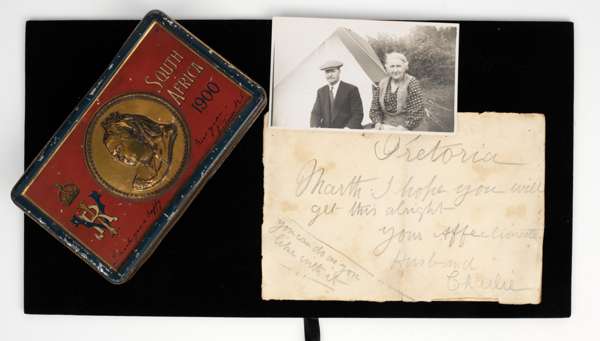 SOUTH
AFRICA
1900
Pretoria
Marth. I hope you will
get this alright
your affectionate
Husband
Charlie
you can do as you
like with it